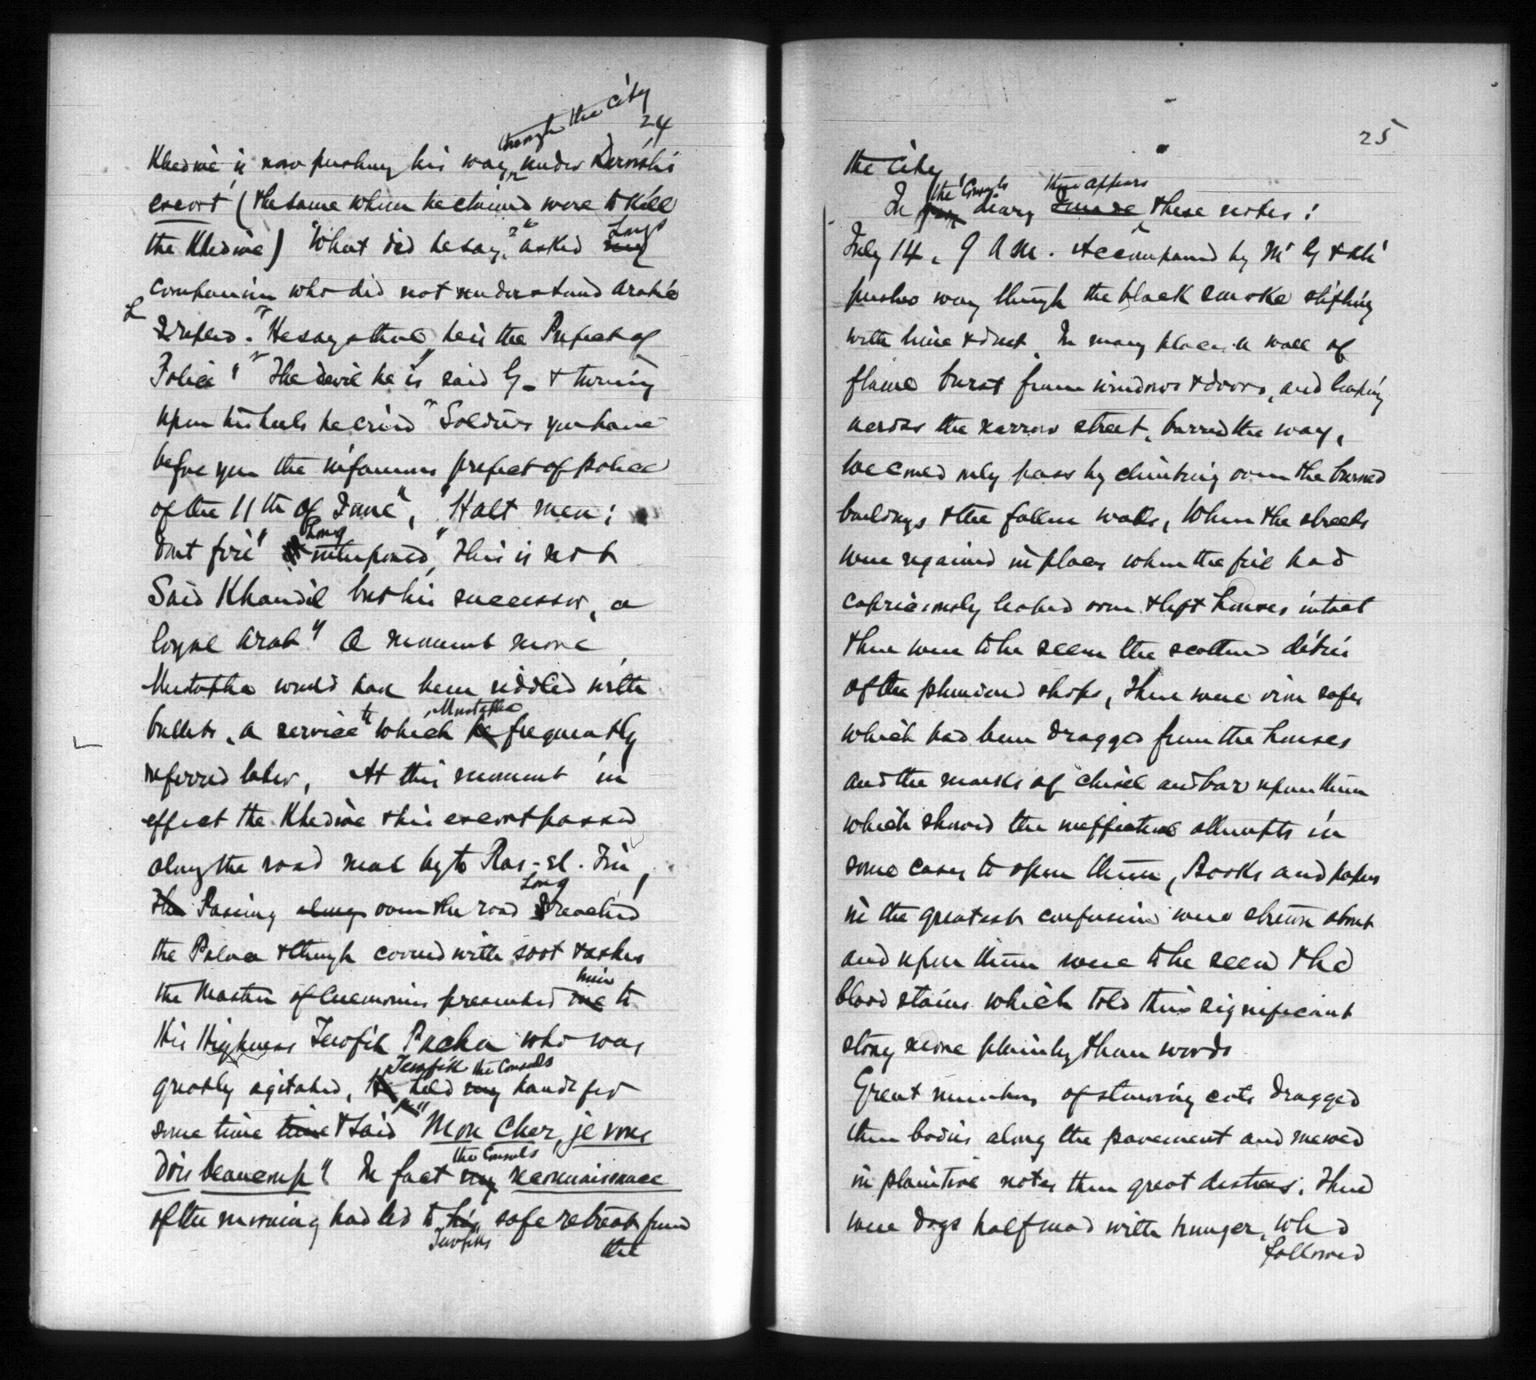 through the city
24
Khedive is now pushing his way under Dervish's
escort (the same whom he claimed were to kill
the Khedive) "What did he say?" asked Long's
companion who did not understand arabic
L replied. "He says that he is the Prefect of
Police" "The devil he is" said G. & turning
upon his heels he cried "Soldiers you have
before you the infamous prefect of police
of the 11th of June", "Halt men;
dont fire" Long interposed, "This is not
Said Khandil but his successor, a
loyal arab" A moment more
Mustapha would have been riddled with
bullets, a service to which he Mustapha frequently
referred later. At this moment in
effect the Khedive & his escort passed
along the road near by to Ras-el-Tin,
The Passing along over the road I Long reached
the Palace & though covered with soot & ashes
the Master of Ceremonies presented me him to
His Highness Tewfik Pacha who was
greatly agitated, He Tewfik held my the Consuls hand for
some time time & said "Mon Cher, je vous
dois beaucoup" In fact my the Consuls reconnaissance
of the morning had led to his Tewfiks safe retreat from
the
25
the city
In my the Consuls diary I made there appears these notes:
July 14, 9 A.M. Accompanied by Mr G & Ali
pushed way through the black smoke stifling
with lime & dust. In many places a wall of
flame burst from windows & doors, and leaping
across the narrow street, barred the way,
we could only pass by climbing over the burned
buildings & the fallen walls, When the streets
were regained in places where the fire had
capriciously leaped over & left houses intact
there were to be seen the scattered débris
of the plundered shops, There were iron safes
which had been dragged from the houses
and the marks of chisel and bar upon them
which showed the ineffectual attempts in
some cases to open them, Books and papers
in the greatest confusion were strewn about
and upon them were to be seen the
blood stains which told their significant
story more plainly than words
Great numbers of starving cats dragged
their bodies along the pavement and mewed
in plaintive notes their great distress. There
were dogs half mad with hunger, who
followed